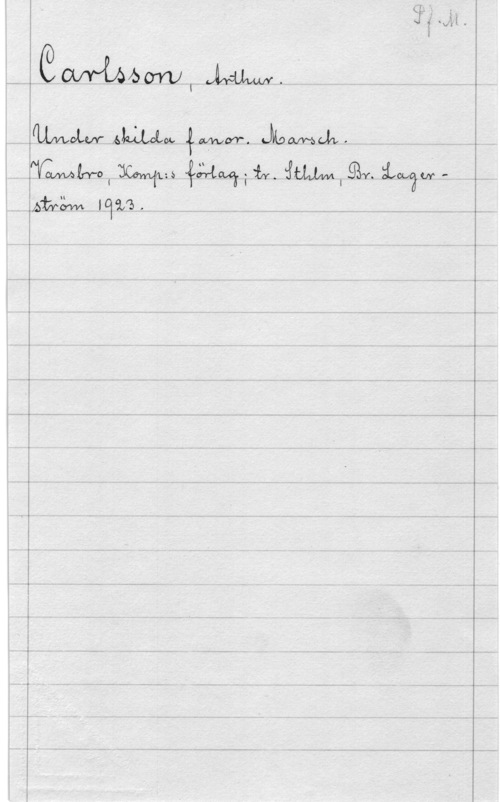 Pf. M.
Carlsson, Arthur.
Under skilda fanor. Marsch.
Vansbro, Komp:s förlag; tr. Sthlm, Br. Lager-
ström 1923.